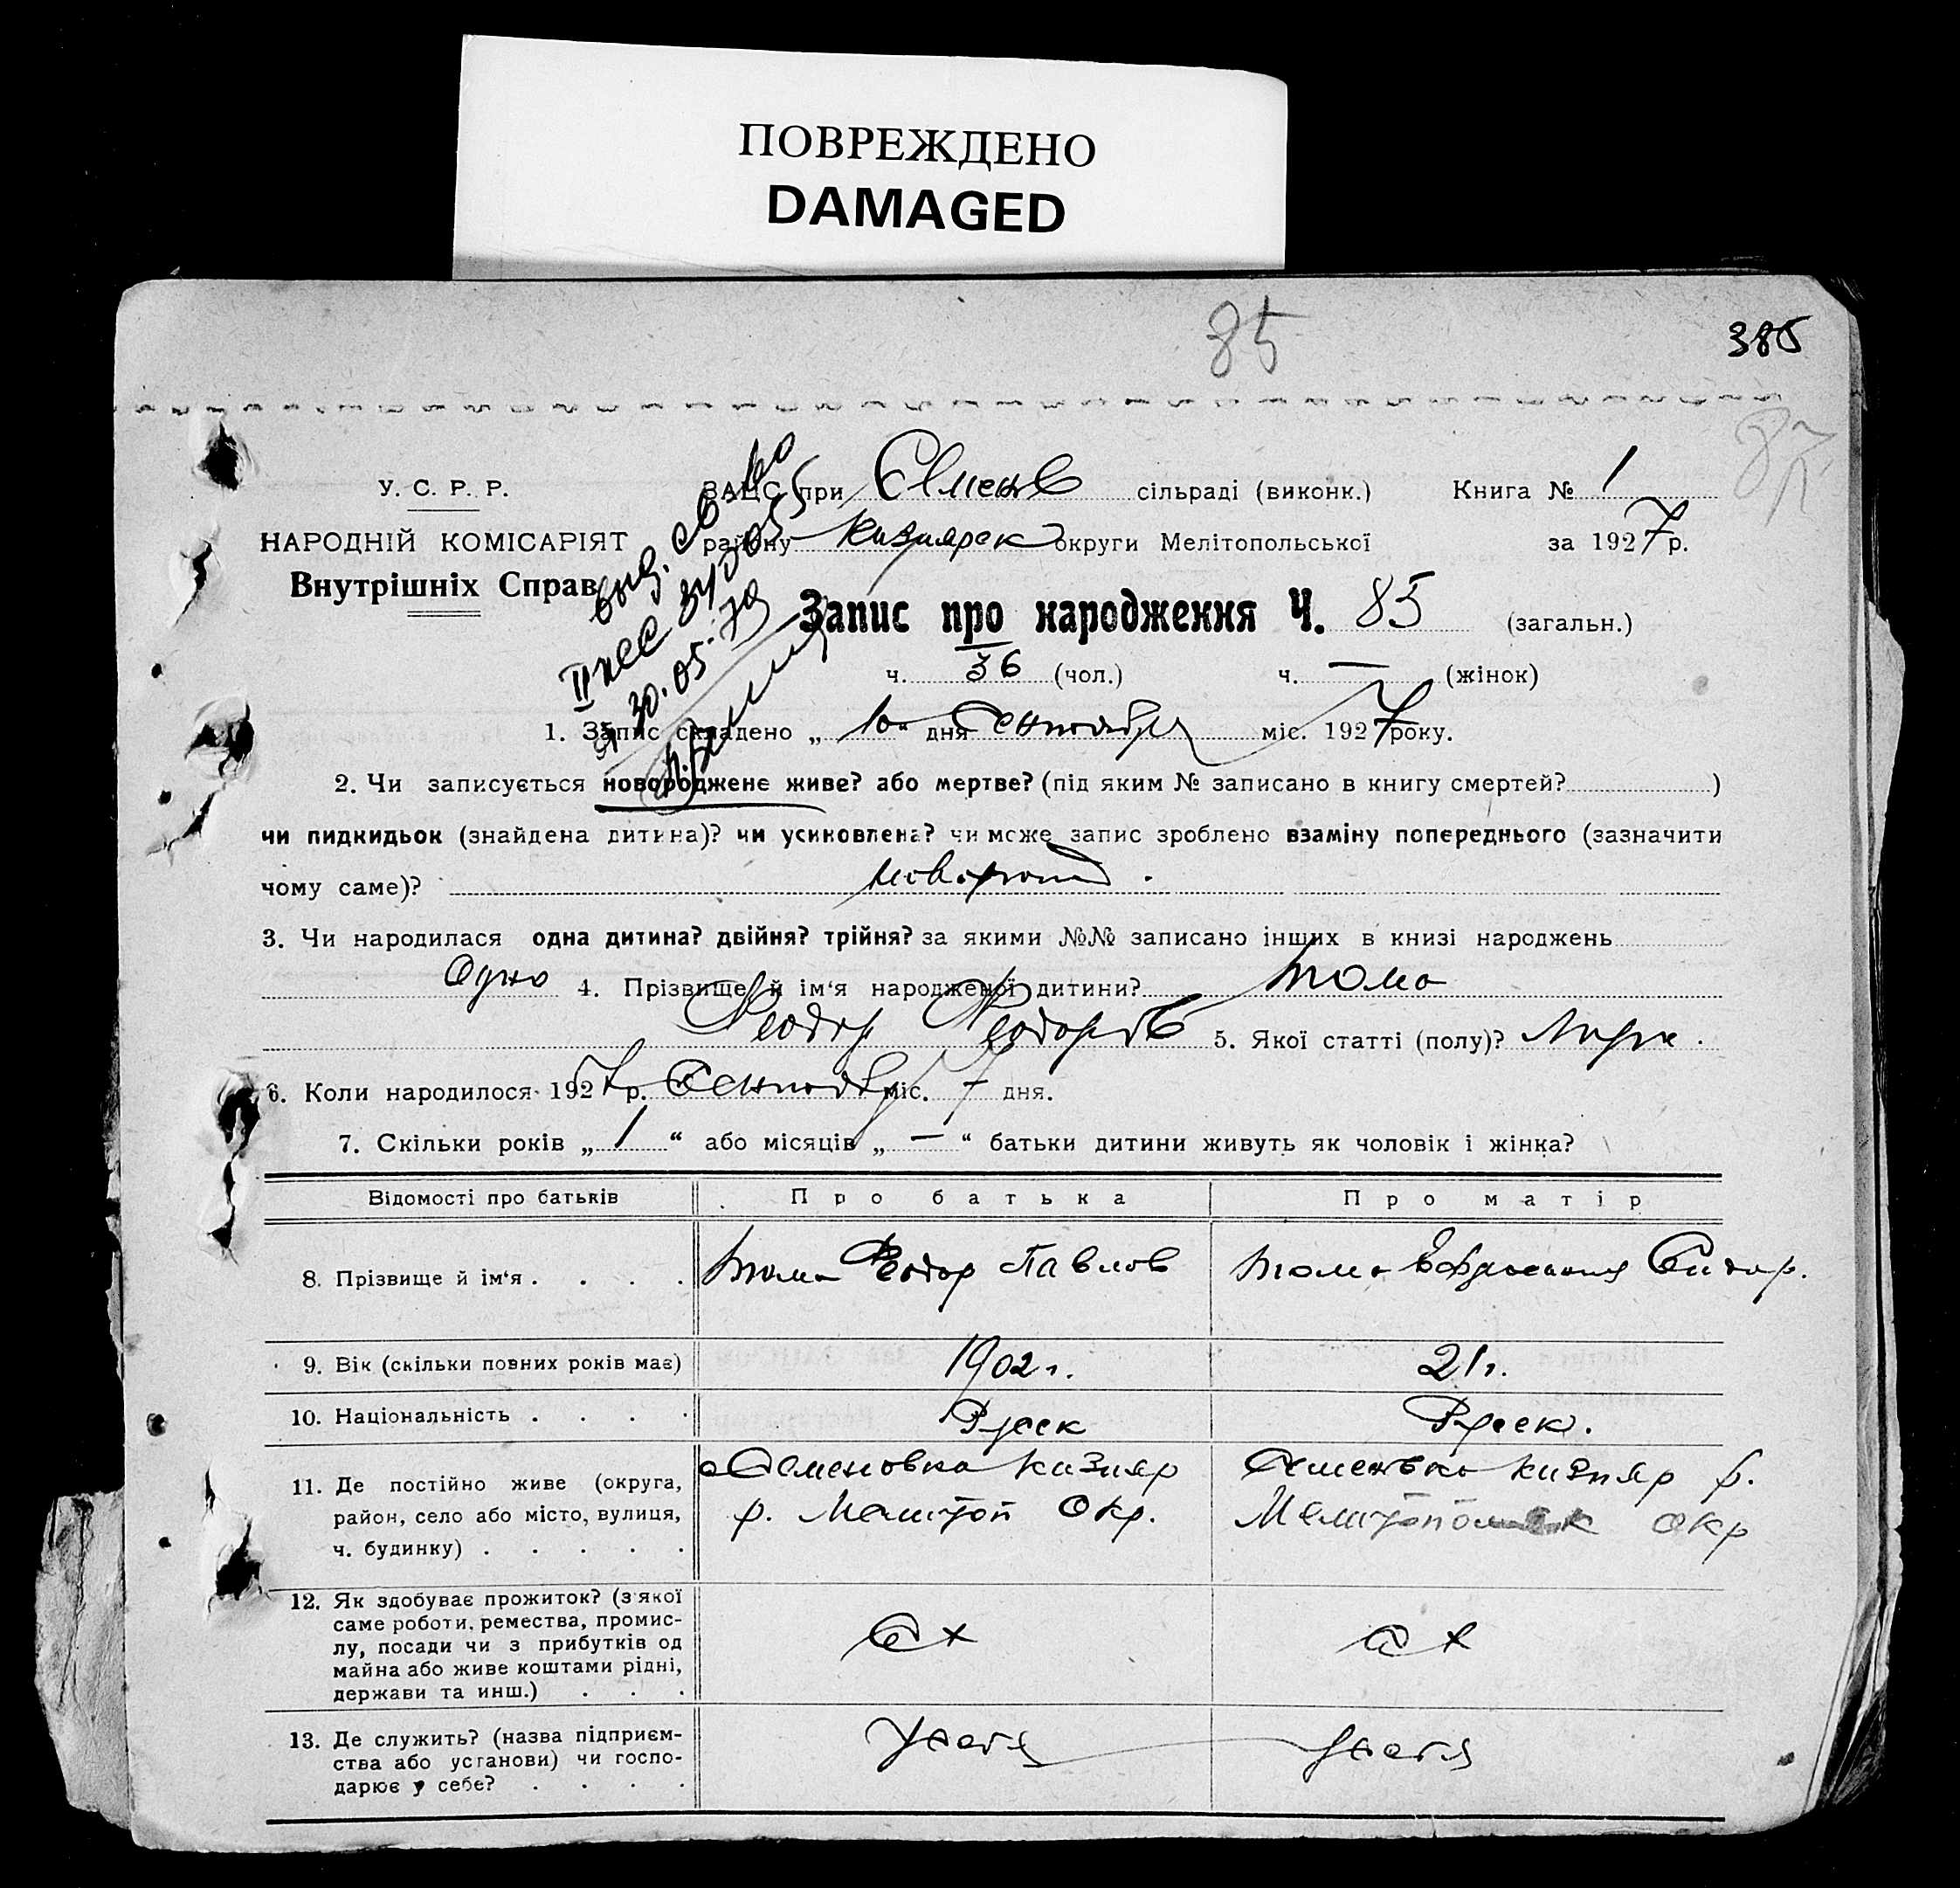 ПОВРЕЖДЕНО
DAMAGED
85
385
У. С. Р. Р.
НАРОДНІЙ КОМІСАРІЯТ
Внутрішніх Справ
ЗАЦС при Семенов сільраді (виконк.) Книга № 1
району Кизиярск округи Мелітопольської за 1927 р.
выд. св-во
30.05.79
Запис про народження Ч. 85 (загальн.)
ч. 36 (чол.) ч. — (жінок)
1. Запис складено „ 10 " дня Сентября міс. 1927 року.
2. Чи записується новороджене живе? або мертве? (під яким № записано в книгу смертей? )
чи пидкидьок (знайдена дитина)? чи усиновлена? чи може запис зроблено взаміну попереднього (зазначити
чому саме)?
3. Чи народилася одна дитина? двійня? трійня? за якими №№ записано інших в книзі народжень
Одно 4. Прізвище й ім‘я народженої дитини? Тома
Феодор Феодоров 5. Якої статті (полу)? Мужск.
6. Коли народилося 1927 р. Сентября міс. 7 дня.
7. Скільки років „ 1 “ або місяців „ — “ батьки дитини живуть як чоловік і жінка?
Відомості про батьків Про батька Про матір
8. Прізвище й ім‘я . . . . Тома Феодор Павлов Тома Ефросиния Сидор.
9. Вік (скільки повних років має) 1902 г. 21 г.
10. Національність . . . . Русск Русск.
11. Де постійно живе (округа, район, село або місто, вулиця, ч. будинку) . . . . .
Семеновка Кизияр
р. Мелитоп Окр.
Семеновка Кизияр р.
Мелитопольск окр
12. Як здобуває прожиток? (з якої
саме роботи, ремества, промис-
лу, посади чи з прибутків од
майна або живе коштами рідні,
держави та инш.) . . .
Сх Сх
13. Де служить? (назва підприєм-
ства або установи) чи госпо-
дарює у себе? . . . .
У себя У себя